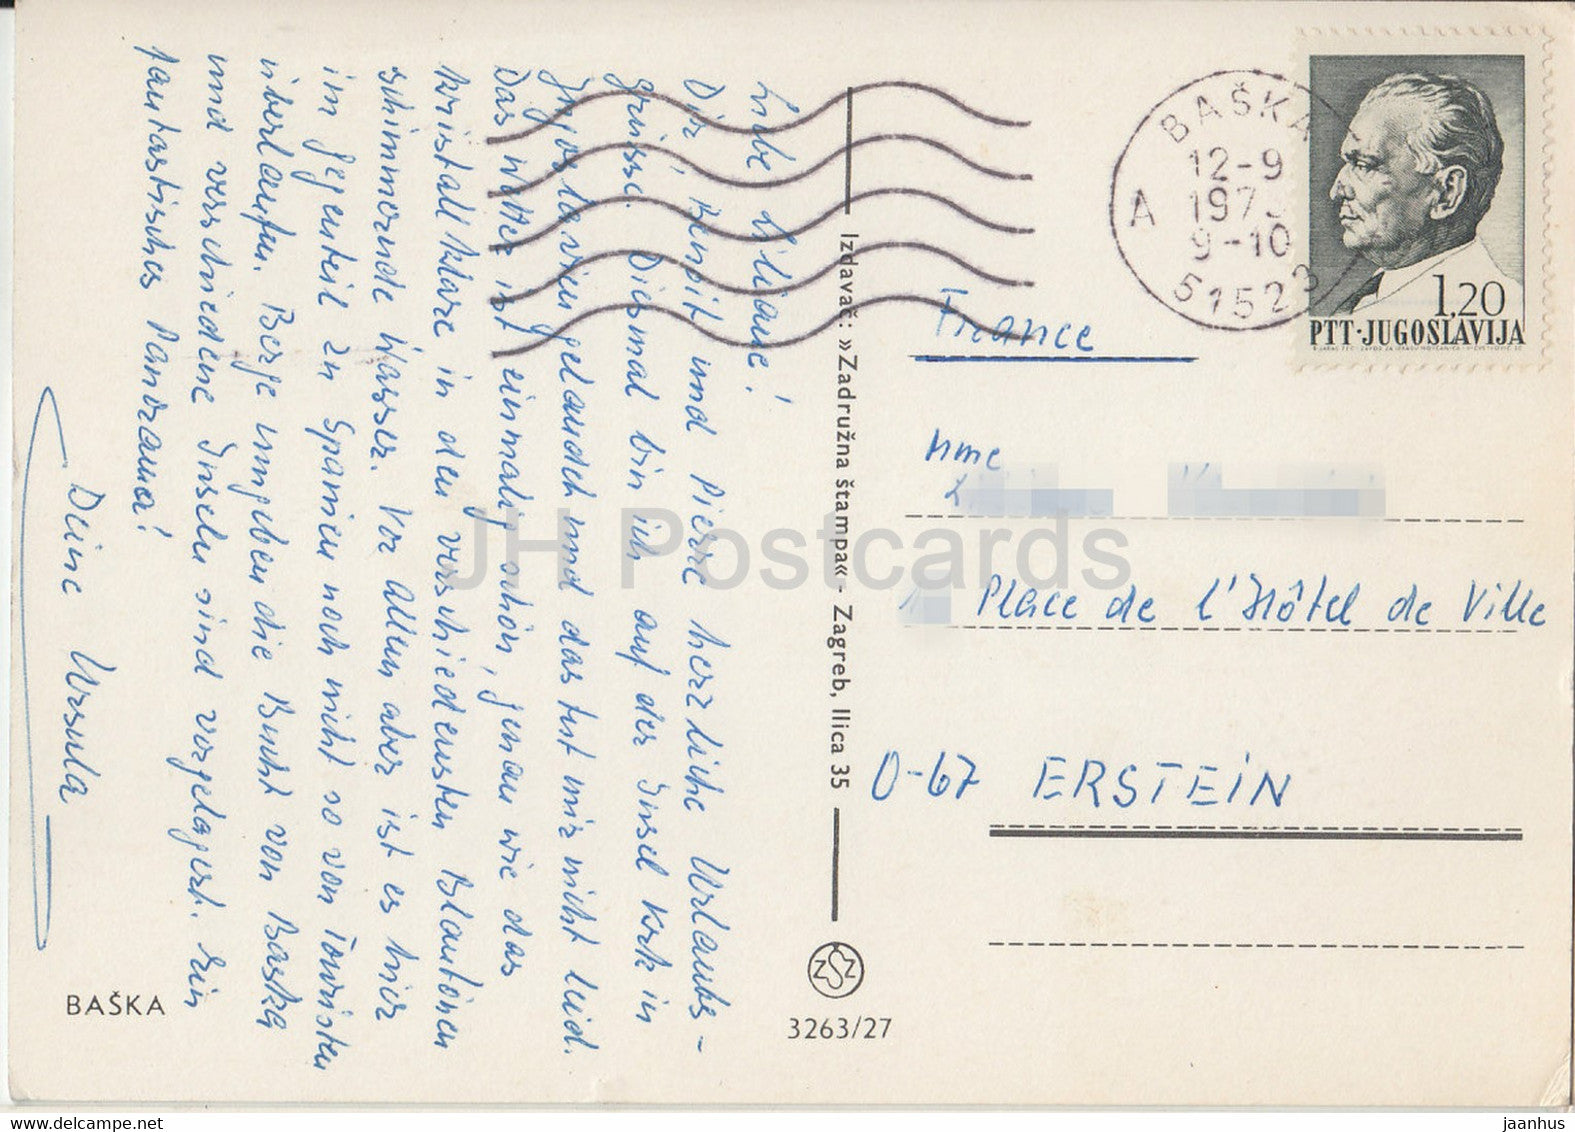 Liebe Liliane!
Dir, Benoit und Pierre herzliche Urlaubs-
grüsse. Diesmal bin ich auf der Insel Krk in
Jugoslavien gelandet und das tut mir nicht leid.
Das Wetter ist einmalig schön, genau wie das
kristallklare in den verschiedensten Blautönen
schimmernde Wasser. Vor allem aber ist es hier
im Gegenteil zu Spanien noch nicht so von Touristen
überlaufen. Berge umgeben die Bucht von Baska
und verschiedene Inseln sind vorgelagert. Ein
fantastisches Panorama!
Deine Ursula
BAŠKA
Izdavač: »Zadružna štampa« - Zagreb, Ilica 35
ZSZ
3263/27
BAŠKA
12-9
197
9-10
A
51523
1,20
PTT·JUGOSLAVIJA
France
Mme
Place de l'Hôtel de Ville
0-67 ERSTEIN
JH Postcards
www.delcampe.net
jaanhus